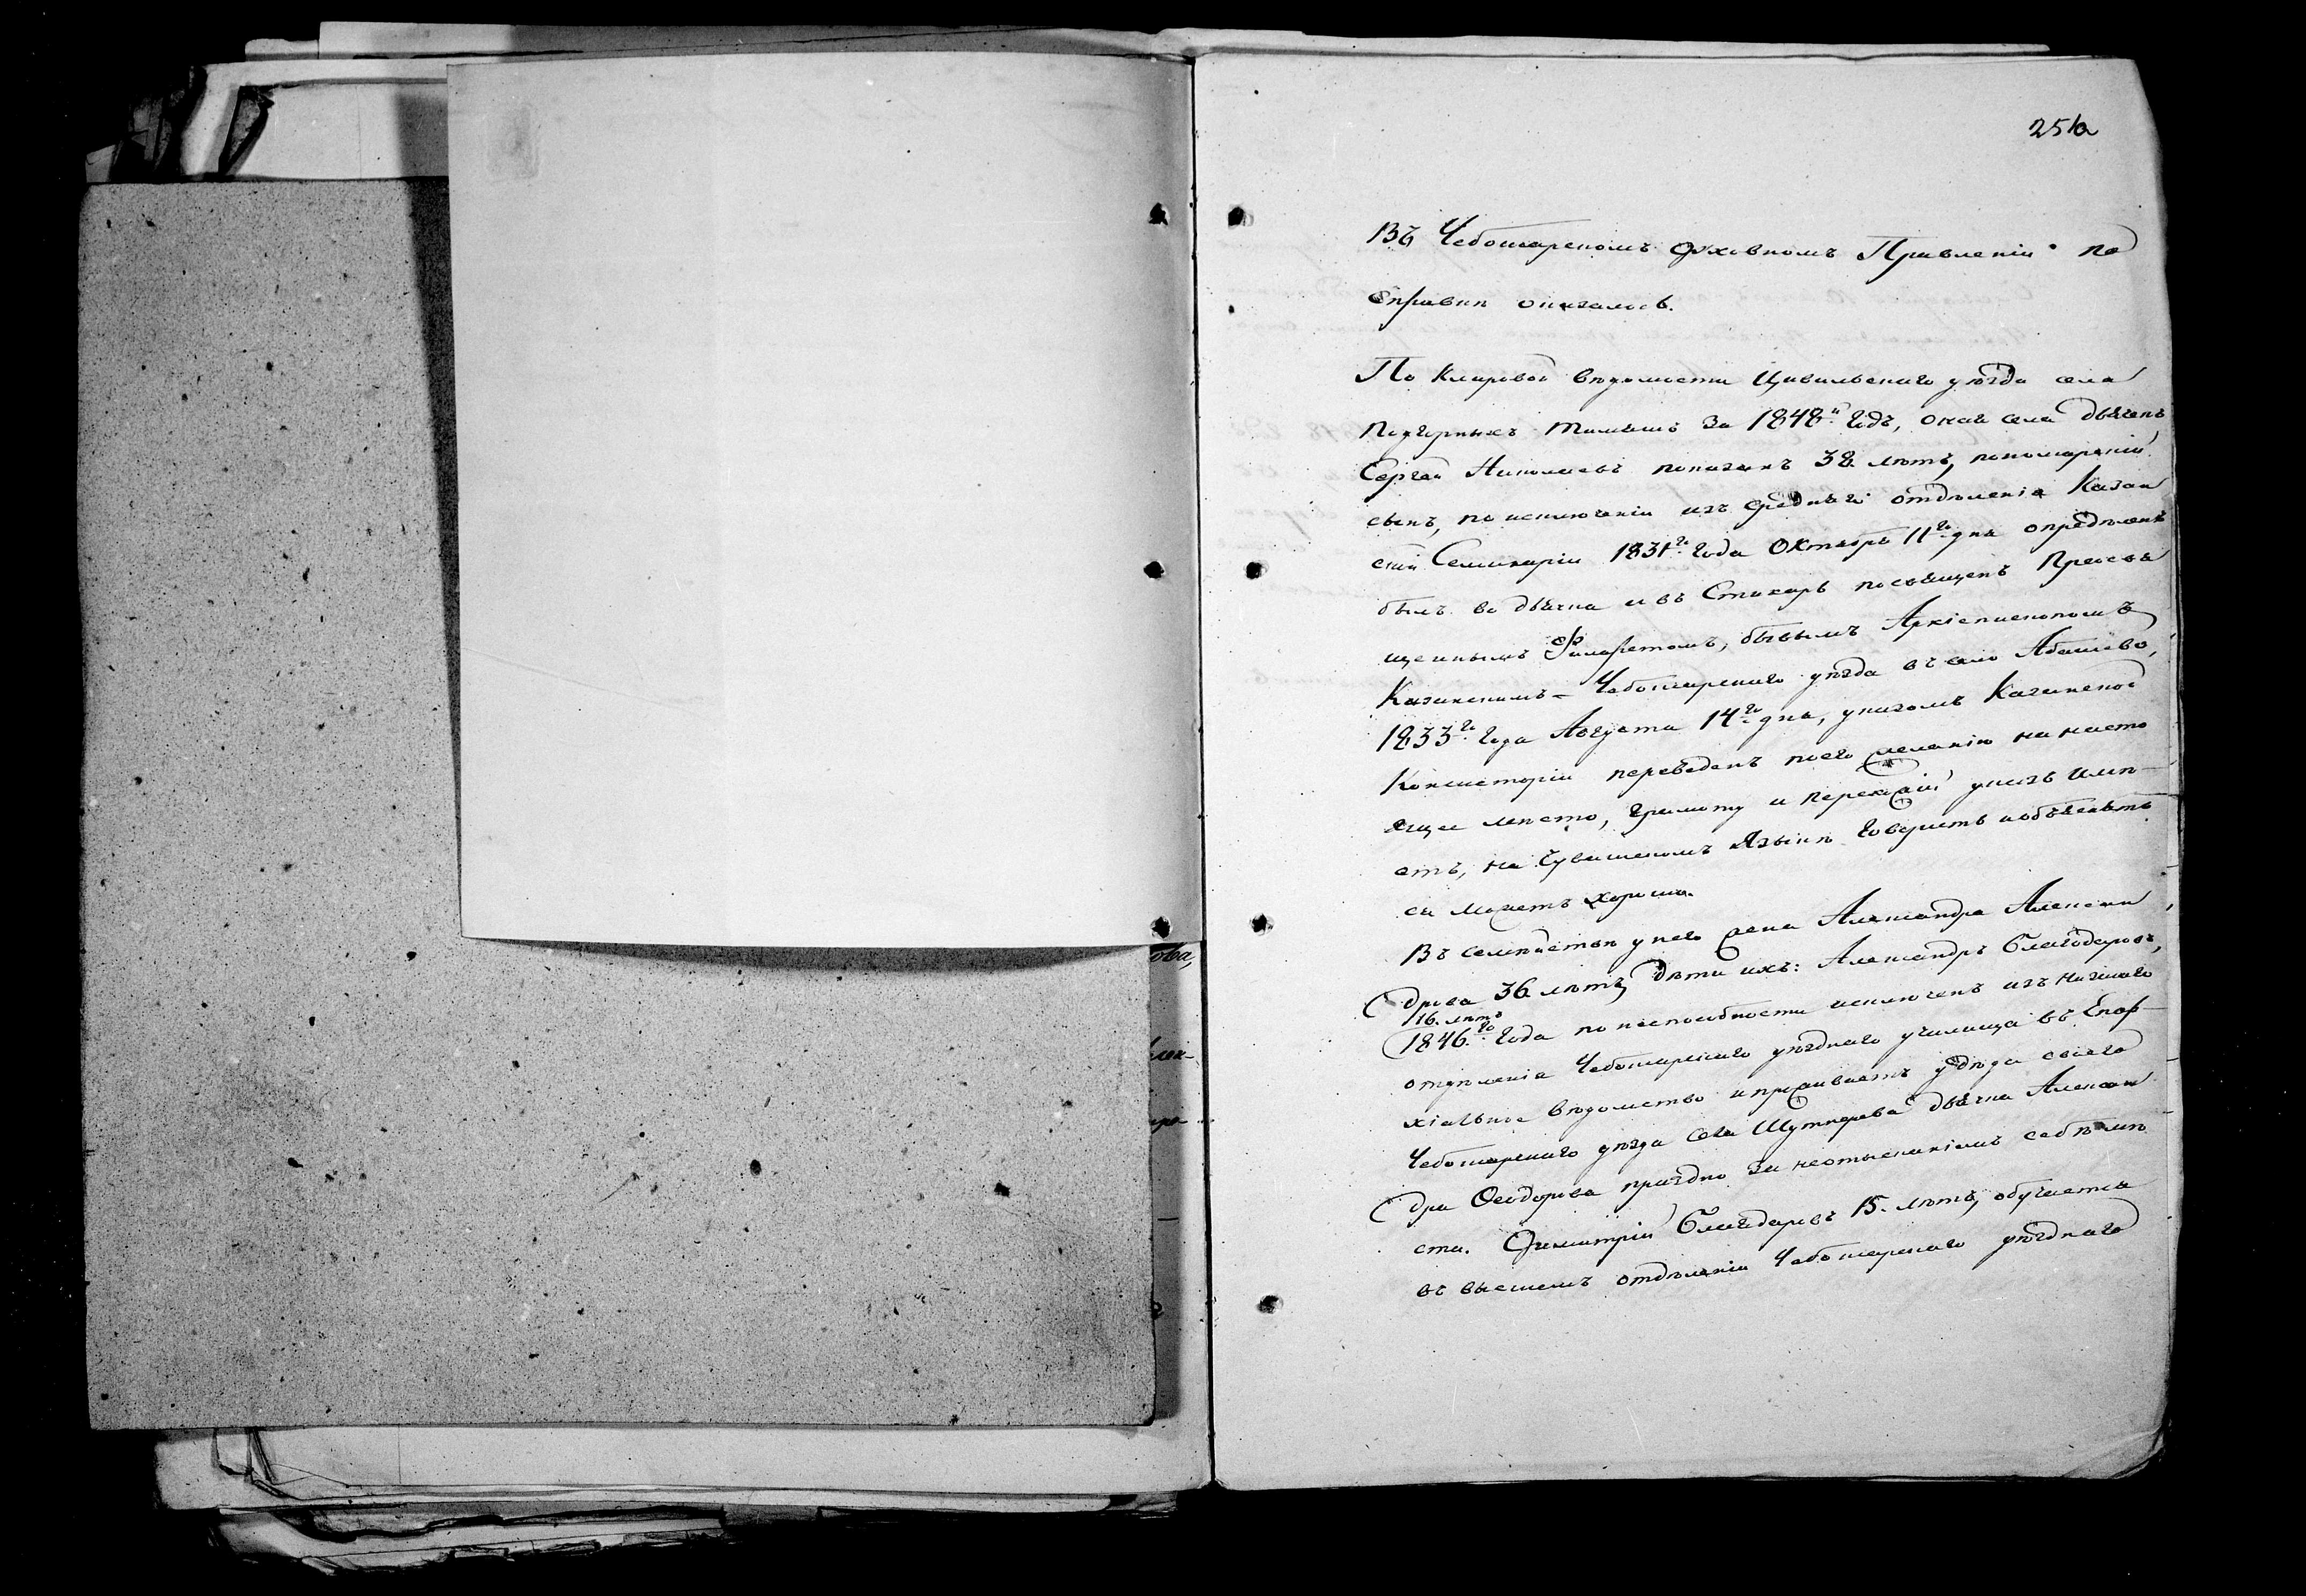 251а
Въ Чебоксарскомъ Духовномъ Правленіи по
справкѣ оказалось.
По клировой вѣдомости Цивильскаго уѣзда села
Подгорныхъ Тимяшъ за 1848й годъ, онаго села дьячекъ
Сергей Николаевъ показанъ 38 лѣтъ, пономарскій
сынъ, по исключеніи изъ средняго отдѣленія Казан
ской Семинаріи 1831го года Октября 11го дня опредѣленъ
былъ во дьячка и въ Стихарь посвященъ Преосвя
щеннымъ Филаретомъ, бывымъ Архіепископомъ
Казанскимъ – Чебоксарскаго уѣзда въ село Абашево,
1833го года Августа 14го дня, указомъ Казанской
Консисторіи переведенъ по его желанію на насто
ящее мѣсто, грамоту и переводный указъ имѣ–
етъ, на Чувашскомъ языкѣ говорить и объяснять
ся можетъ хорошо.
Въ семействѣ у него жена Александра Алексан
дрова 36 лѣтъ, дѣти ихъ: Александръ Благодаровъ,
16. лѣтъ
1846го года по неспособности исключенъ изъ низшаго
отдѣленія Чебоксарскаго уѣзднаго училища въ Епар–
хіальное вѣдомство и проживаетъ у дѣда своего
Чебоксарскаго уѣзда села Шуткерева дьячка Алексан
дра Ѳеодорова праздно за неотысканіемъ себѣ мѣ
ста. Димитрій Благодаровъ 15. лѣтъ, обучается
въ высшемъ отдѣленіи Чебоксарскаго уѣзднаго
ова,